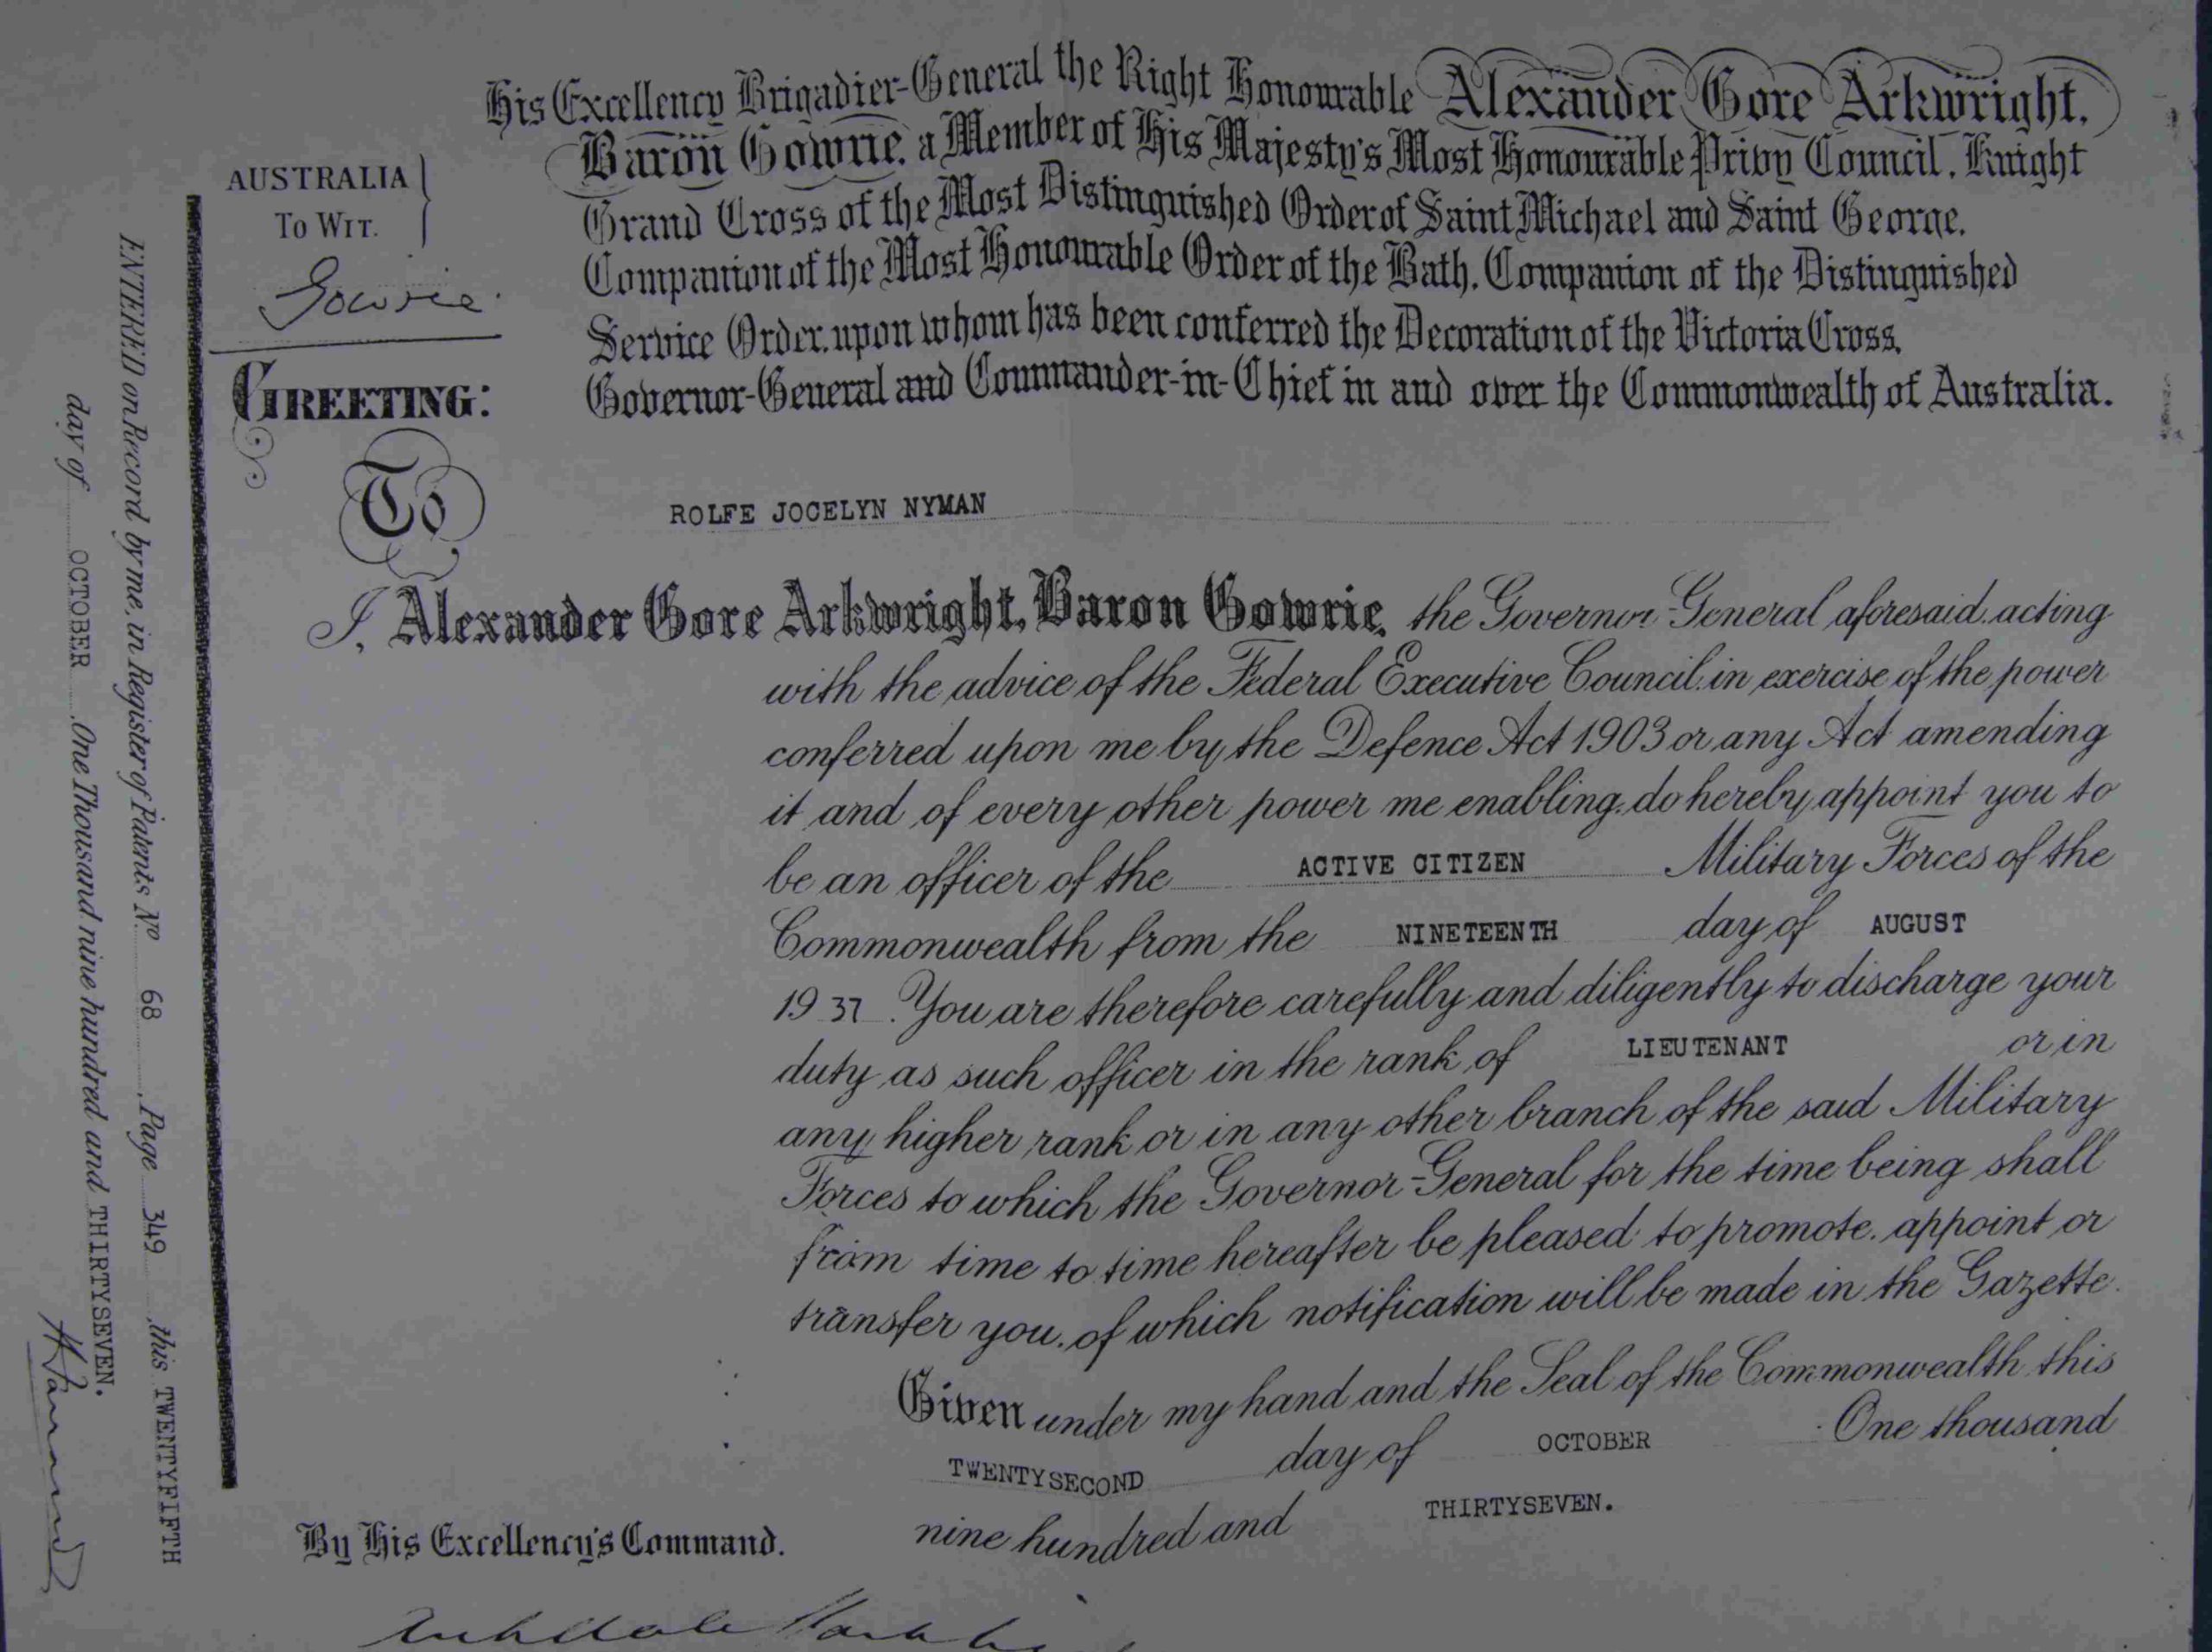 His Excellency Brigadier-General the Right Honourable Alexander Gore Arkwright,
Baron Gowrie, a Member of His Majesty's Most Honourable Privy Council, Knight
Grand Cross of the Most Distinguished Order of Saint Michael and Saint George,
Companion of the Most Honourable Order of the Bath, Companion of the Distinguished
Service Order, upon whom has been conferred the Decoration of the Victoria Cross,
Governor-General and Commander-in-Chief in and over the Commonwealth of Australia.
AUSTRALIA
TO WIT.
Gowrie
GREETING:
To
ROLFE JOCELYN NYMAN
I, Alexander Gore Arkwright, Baron Gowrie, the Governor-General aforesaid, acting
with the advice of the Federal Executive Council, in exercise of the power
conferred upon me by the Defence Act 1903 or any Act amending
it and of every other power me enabling, do hereby appoint you to
be an officer of the ACTIVE CITIZEN Military Forces of the
Commonwealth from the NINETEENTH day of AUGUST
1937. You are therefore carefully and diligently to discharge your
duty as such officer in the rank of LIEUTENANT or in
any higher rank or in any other branch of the said Military
Forces to which the Governor-General for the time being shall
from time to time hereafter be pleased to promote, appoint or
transfer you, of which notification will be made in the Gazette.
Given under my hand and the Seal of the Commonwealth this
TWENTYSECOND day of OCTOBER One thousand
nine hundred and THIRTYSEVEN.
By His Excellency's Command.
ENTERED on Record by me, in Register of Patents No 68 Page 349 this TWENTYFIFTH
day of OCTOBER One Thousand nine hundred and THIRTYSEVEN.